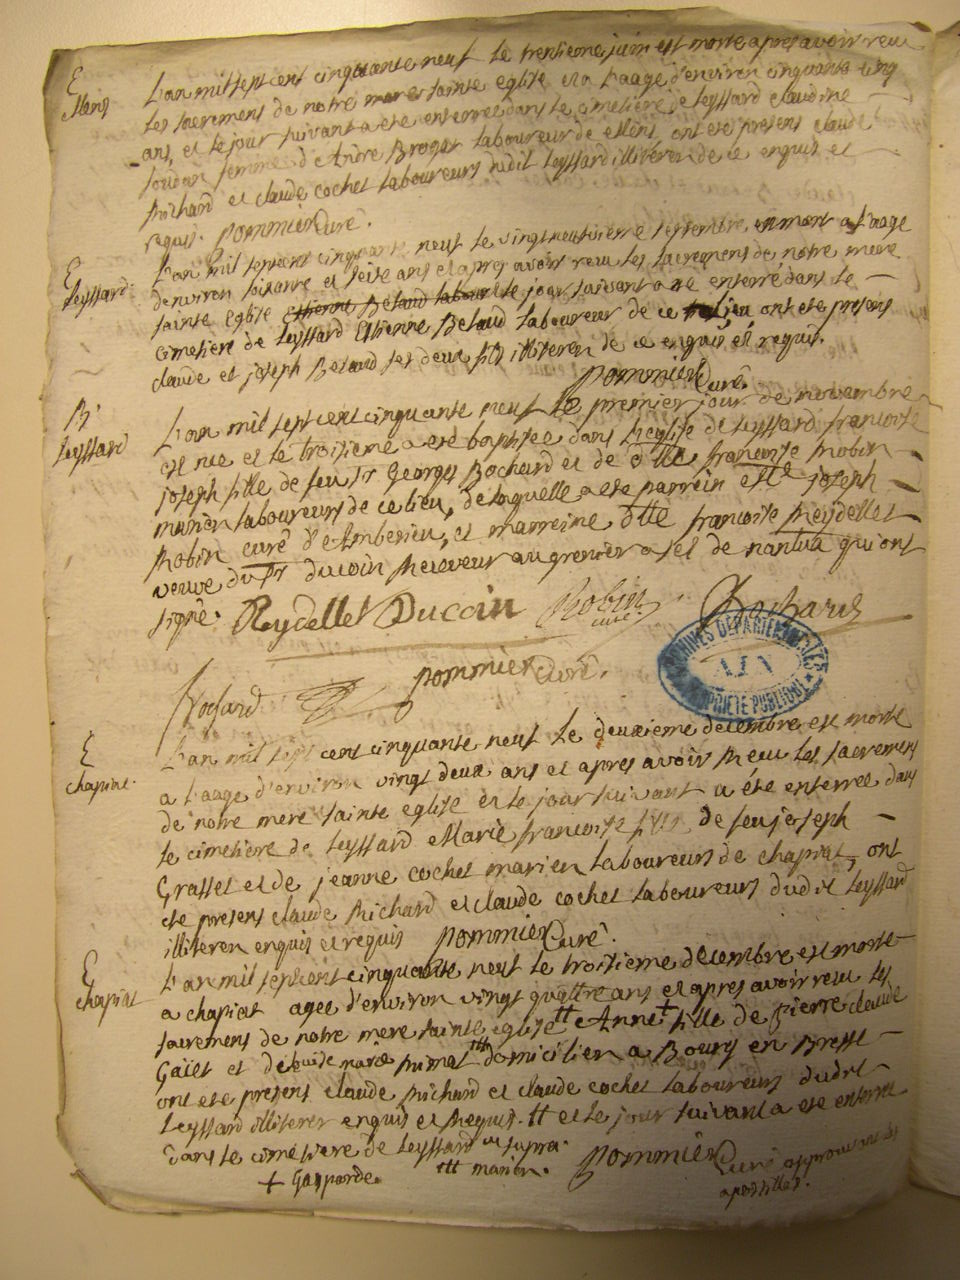 E
Elens
L'an mil sept cent cinquante neuf le trentieme juin est morte apres avoir reçu
les sacremens de notre mere sainte eglise et a l'aage d'environ cinquante cinq
ans, et le jour suivant a eté enterrée dans le cimetiere de Leyssard claudine
joudan femme d'Andre Broger laboureur de elens, ont eté presens claude
Richard et claude cochet laboureurs dudit Leyssard illiteren de ce enquis et
requis. pommier Curé.
E
Leyssard.
L'an mil sept cent cinquante neuf le vingt neuvieme septembre, est mort a l'aage
d'environ soixante et seize ans et apres avoir reçu les sacremens de notre mere
sainte eglise Etienne Belaud labour le jour suivant a eté enterré dans le
cimetiere de Leyssard Etienne Belaud laboureur de ce lieu ont eté presens
claude et joseph Belaud ses deux fils illiteren de ce enquis et requis.
pommier Curé.
B
Leyssard
L'an mil sept cent cinquante neuf le premier jour de novembre
est née et le troisieme a eté baptisée dans l'eglise de Leyssard françoise
joseph fille de feu Sr George Bochard et de dlle françoise Robin
marien laboureurs de ce lieu, de laquelle a eté parrein Mre joseph
Robin curé d'Amberieu, et marreine dlle françoise Reydellet
veuve du Sr ducoin Receveur au grenier a sel de nantua qui ont
signé. Reydellet Ducoin Robin curé Bochard
ARCHIVES DEPARTEMENTALES
AIN
PROPRIETE PUBLIQUE
Bochard pommier Curé.
E
chapiat.
L'an mil sept cent cinquante neuf le deuxieme decembre est morte
a l'aage d'environ vingt deux ans et apres avoir Receu les sacremens
de notre mere sainte eglise et le jour suivant a été enterrée dans
le cimetiere de Leyssard Marie françoise fille de feu joseph
Grasset et de jeanne cochet marien laboureurs de chapiat, ont
eté presens claude Richard et claude cochet laboureurs dudit Leyssard
illiteren enquis et requis pommier Curé.
E
chapiat
L'an mil sept cent cinquante neuf le troisieme decembre est morte
a chapiat agee d'environ vingt quattre ans et apres avoir reçu les
sacremens de notre mere sainte eglise tt Anne + fille de pierre claude
Gaiet et de marie ttt domicilien a Bourg en Bresse
ont eté presens claude Richard et claude cochet laboureurs dudit
Leyssard illiteren enquis et Requis. tt et le jour suivant a eté enterrée
dans le cimetiere de Leyssard ut supra.
+ Gasparde. ttt marien. pommier Curé approuvant les
apostilles.